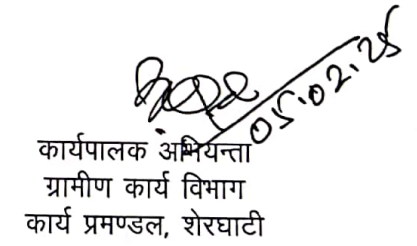 05.02.25
कार्यपालक अभियन्ता
ग्रामीण कार्य विभाग
कार्य प्रमण्डल, शेरघाटी